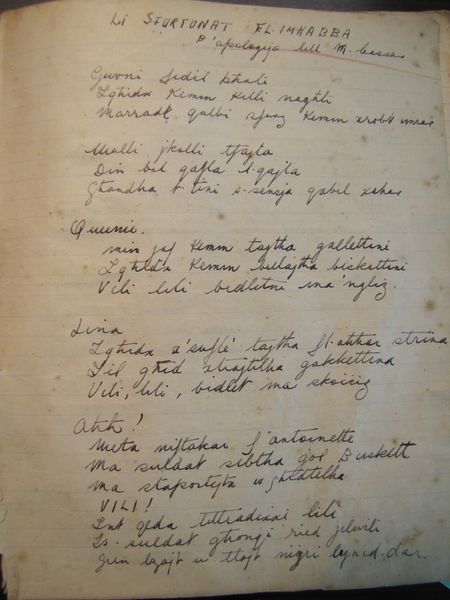 LI SFURTUNAT FL-IMHABBA
B'apologija lill M. Cassar
Guvni fidil khali
Lghidx Kemm Kelli naghli
Marradt qalbi sforz Kemm xrobt inbid
jkolli tfajla
Din bil qafla l-gajla
Ghandha t-tini s-sensja qabel xahar
Queenie,
min jaf Kemm tajtha gallettini
Lghidx Kemm billajtha biskuttini
Vili lili bidletni ma ngliz.
Lina
Lghidx x'suflé tajtha fl-ahhar strina
Lil ghid xtrajtilha gakkettina
Vili, lili, bidlet ma skocciz
Ahh!
Meta niftakar f'Antoinette
Ma suldat sibtha gol Buskett
Ma staportejtx w ghidtilha
VILI!
Int qeda tittradixxi lili
Is-suldat ghongi ried jlwili
Jien bzajt u tlajt nigri lejn id-dar.